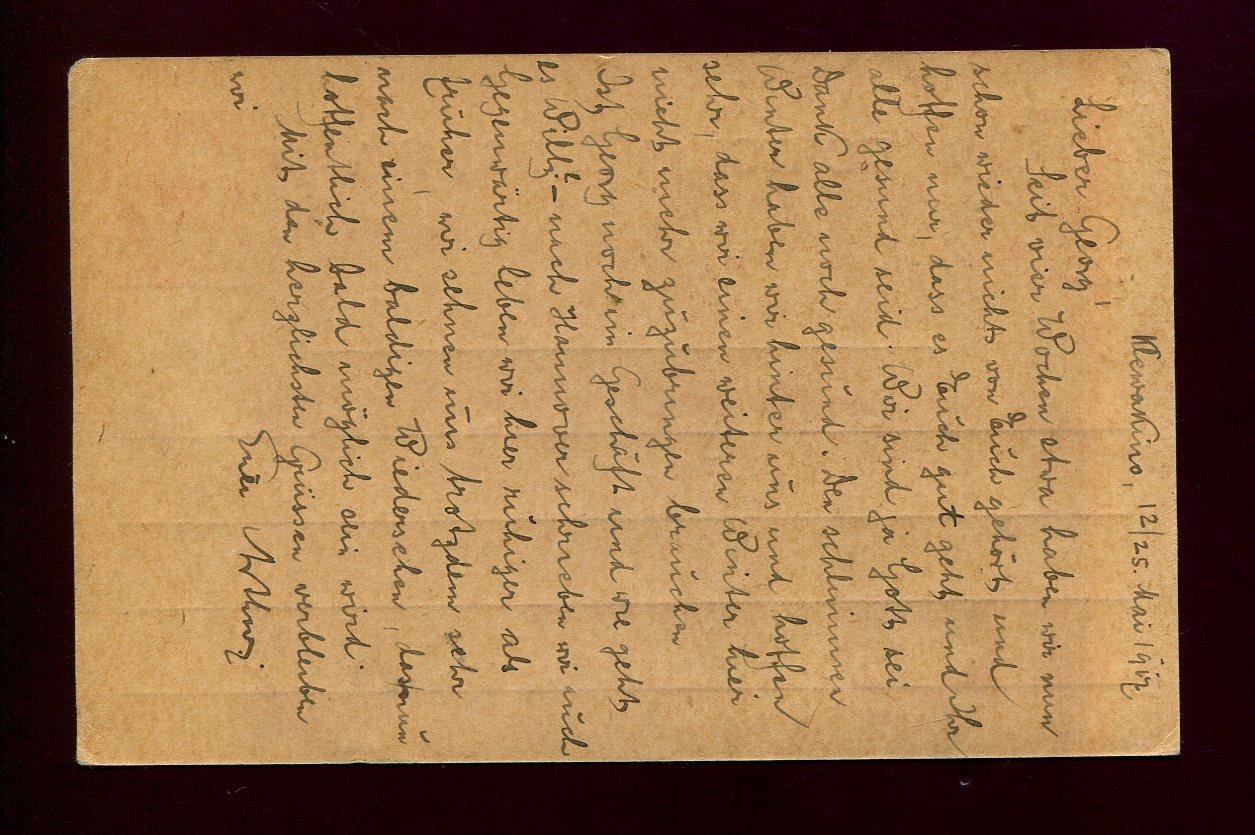 Klewakino, 12/25. Mai 1917
Lieber Georg!
Seit vier Wochen etwa haben wir nun
schon wieder nichts von Euch gehört und
hoffen nur, dass es Euch gut geht und Ihr
alle gesund seid. Wir sind ja Gott sei
Dank alle noch gesund. Den schlimmen
Winter haben wir hinter uns und hoffen
sehr, dass wir einen weiteren Winter hier
nicht mehr zuzubringen brauchen
Ist Georg noch im Geschäft und wie geht
es Willy? – nach Hannover schrieben wir auch
Gegenwärtig leben wir hier ruhiger als
früher, wir sehnen uns trotzdem sehr
nach einem baldigen Wiedersehen, das nun
hoffentlich bald möglich sein wird.
Mit den herzlichsten Grüssen verbleiben
wir
Euer